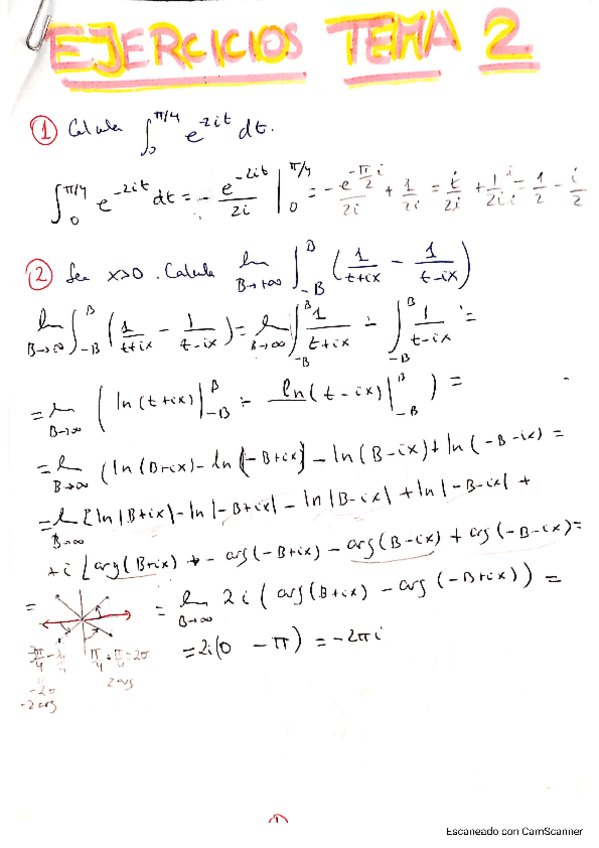 EJERCICIOS TEMA 2
① Calcula ∫_0^{π/4} e^{-2it} dt.
∫_0^{π/4} e^{-2it} dt = - e^{-2it}/2i |_0^{π/4} = - e^{-π/2 i}/2i + 1/2i = i/2i + 1/2i · i/i = 1/2 - i/2
② Sea x>0. Calcula lim_{B→+∞} ∫_{-B}^{B} (1/(t+ix) - 1/(t-ix))
lim_{B→∞} ∫_{-B}^{B} (1/(t+ix) - 1/(t-ix)) = lim_{B→∞} ∫_{-B}^{B} 1/(t+ix) - ∫_{-B}^{B} 1/(t-ix) =
= lim_{B→∞} ( ln(t+ix) |_{-B}^{B} - ln(t-ix) |_{-B}^{B} ) =
= lim_{B→∞} (ln(B+ix) - ln(-B+ix) - ln(B-ix) + ln(-B-ix) =
= lim_{B→∞} [ln|B+ix| - ln|-B+ix| - ln|B-ix| + ln|-B-ix| +
+ i [arg(B+ix) - arg(-B+ix) - arg(B-ix) + arg(-B-ix) =
= = lim_{B→∞} 2i (arg(B+ix) - arg(-B+ix)) =
= 2i(0 - π) = -2πi
π/4 + π/4 = 2σ
-2σ
2 arg
-2 arg
1
Escaneado con CamScanner